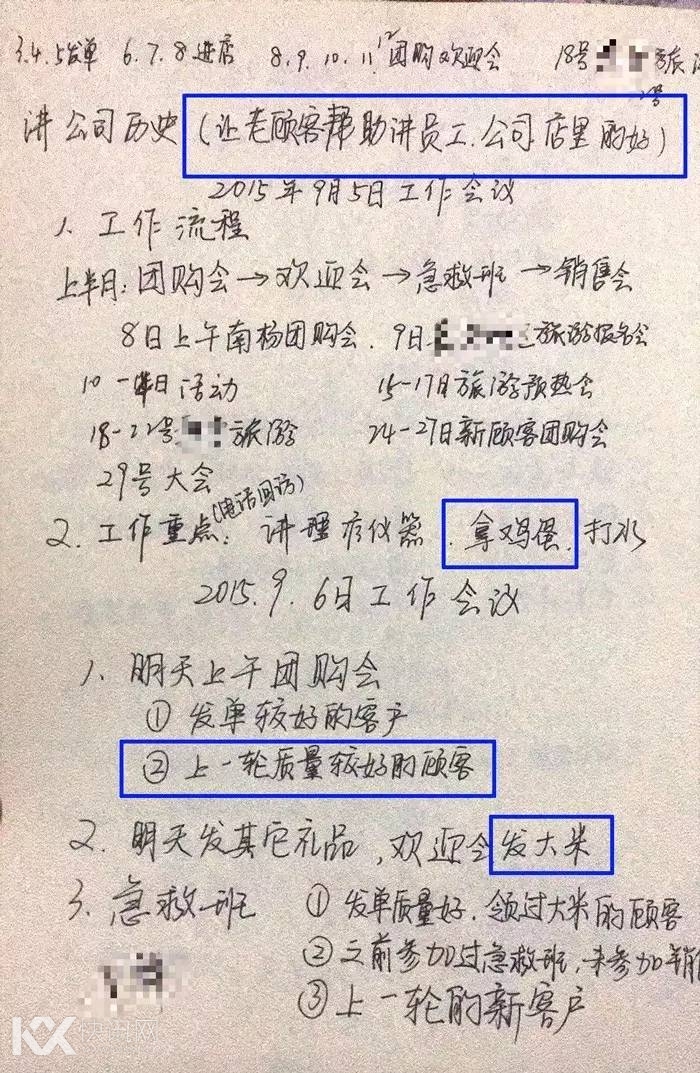 3.4.5发单 6.7.8进店 8.9.10.11.12团购欢迎会 18号 旅游
讲公司历史(让老顾客帮助讲员工.公司店里的好)
2015年9月5日工作会议
1、工作流程
上半月:团购会→欢迎会→急救班→销售会
8日上午南杨团购会. 9日 旅游报名会
10-14日活动 15-17日旅游预热会
18-22号 旅游 24-27日新顾客团购会
29号大会
(电话回访)
2、工作重点:讲理疗仪器.拿鸡蛋.打水
2015.9.6日工作会议
1、明天上午团购会
①发单较好的客户
②上一轮质量较好的顾客
2、明天发其它礼品,欢迎会发大米
3、急救班 ①发单质量好.领过大米的顾客
②之前参加过急救班,未参加销
③上一轮的新客户
KX